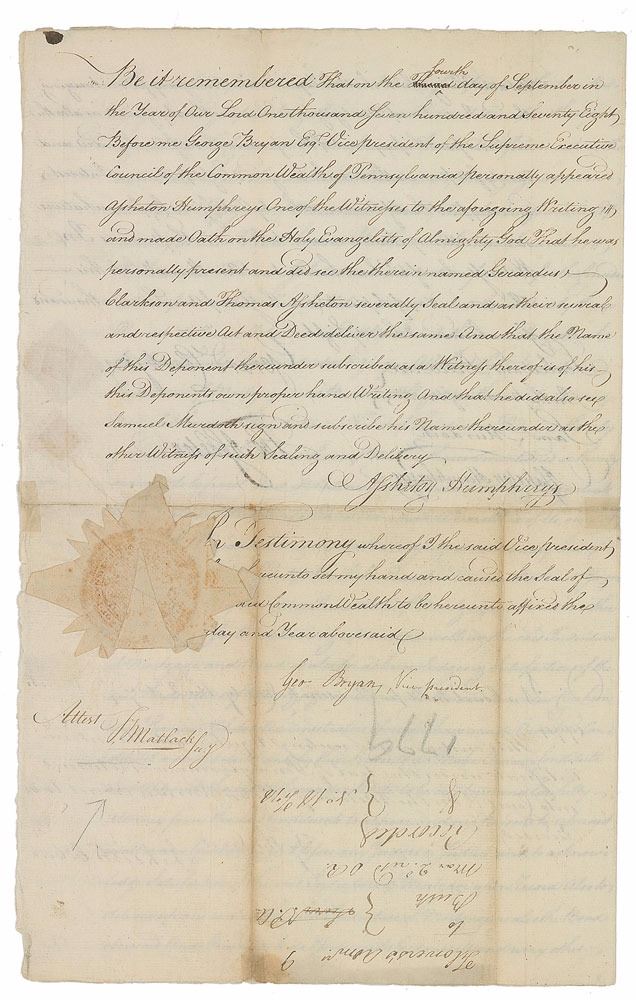 Be it remembered That on the fourth day of September in
the Year of Our Lord One thousand Seven hundred and Seventy Eight
Before me George Bryan Esqr. Vice president of the Supreme Executive
Council of the Common Wealth of Pennsylvania personally appeared
Assheton Humphreys One of the Witnesses to the aforegoing Writing
and made Oath on the Holy Evangelists of Almighty God That he was
personally present and did see the therein named Gerardus
Clarkson and Thomas Assheton severally Seal and as their several
and respective Act and Deed deliver the same And that the Name
of this Deponent thereunder subscribed as a Witness thereof is of his
this Deponents own proper hand Writing And that he did also see
Samuel Murdoth sign and subscribe his Name thereunder as the
other Witness of such Sealing and Delivery
Assheton Humphreys
In Testimony whereof I the said Vice president
hereunto set my hand and caused the Seal of
said Common Wealth to be hereunto affixed the
day and Year abovesaid
Geo Bryan, Vice president.
Attest T Matlack Secy
1779
Recorded
to
Bush